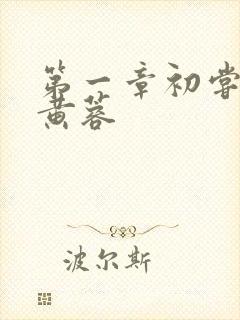 第一章初尝
黄蓉
波尔斯